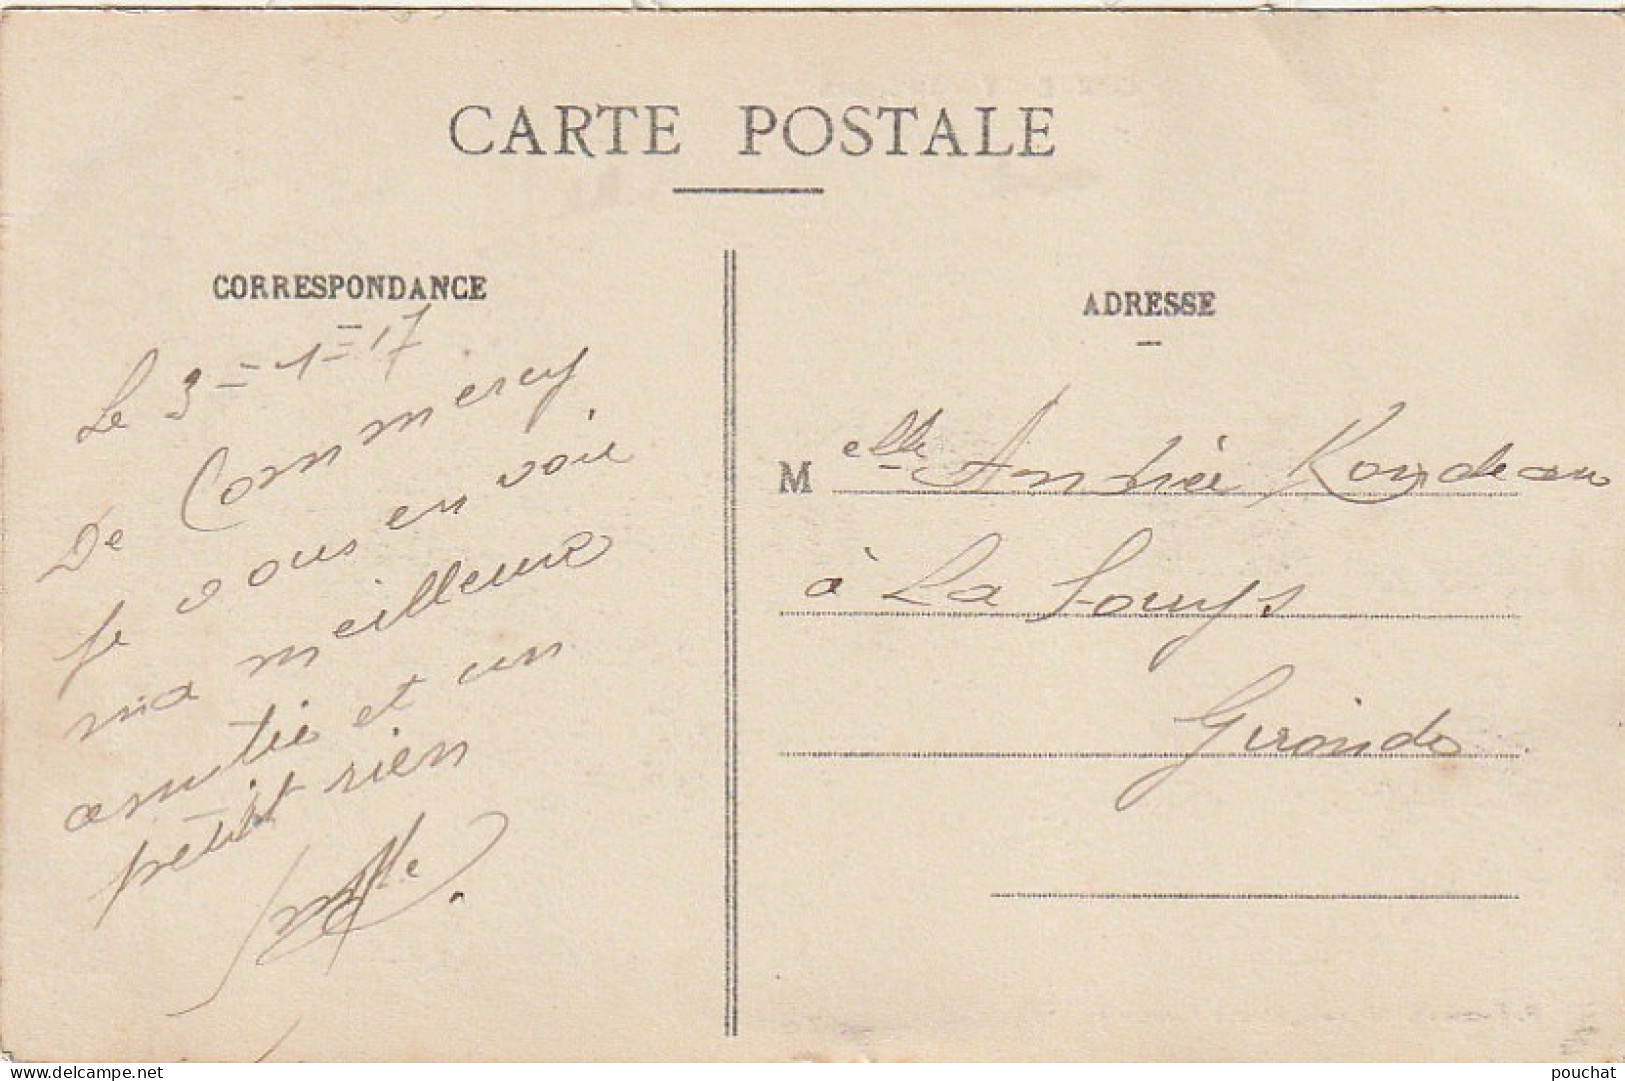 CARTE POSTALE
CORRESPONDANCE
Le 3=1=17
De Commercy
je vous envoie
ma meilleure
amitié et un
petit rien
ADRESSE
Melle Andrée Rondeau
à La Souys
Gironde
www.delcampe.net
pouchat